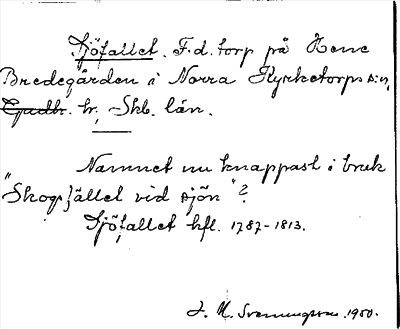 Sjöfallet. F.d. torp på Hene
Bredegården i Norra Kyrketorps s:n,
Gudh. hr, Skb. län.
Namnet nu knappast i bruk
"Skogsfället vid sjön"?
Sjöfallet hfl. 1787-1813.
J. M. Svenningsson. 1950.